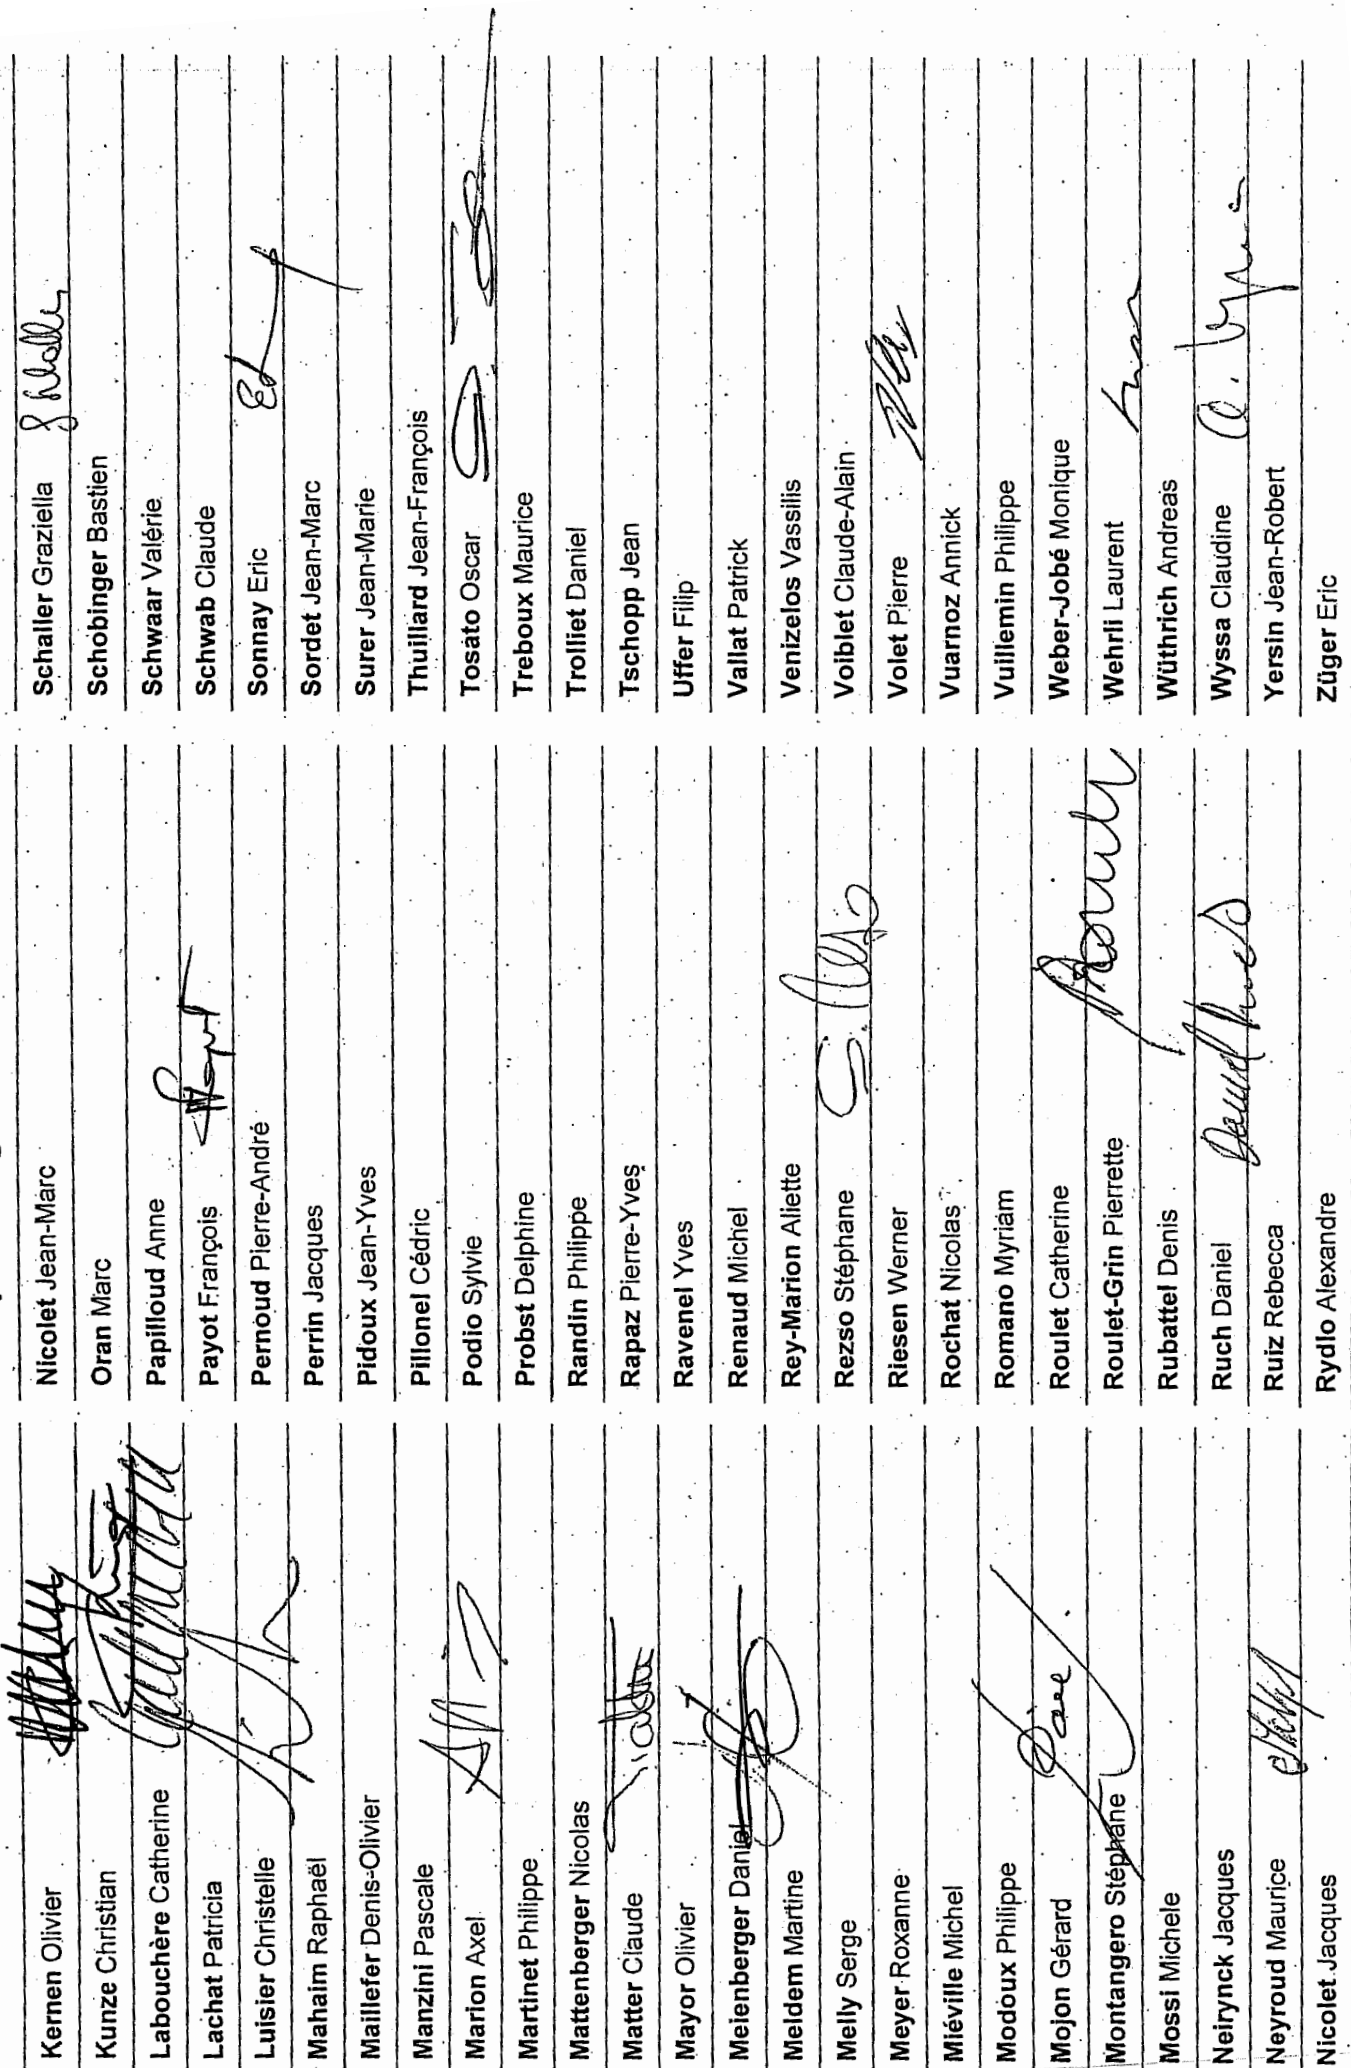 Kernen Olivier
Kunze Christian
Labouchère Catherine
Lachat Patricia
Luisier Christelle
Mahaim Raphaël
Maillefer Denis-Olivier
Manzini Pascale
Marion Axel
Martinet Philippe
Mattenberger Nicolas
Matter Claude
Mayor Olivier
Meienberger Daniel
Meldem Martine
Melly Serge
Meyer Roxanne
Miéville Michel
Modoux Philippe
Mojon Gérard
Montangero Stéphane
Mossi Michele
Neirynck Jacques
Neyroud Maurice
Nicolet Jacques
Nicolet Jean-Marc
Oran Marc
Papilloud Anne
Payot François
Pernoud Pierre-André
Perrin Jacques
Pidoux Jean-Yves
Pillonel Cédric
Podio Sylvie
Probst Delphine
Randin Philippe
Rapaz Pierre-Yves
Ravenel Yves
Renaud Michiel
Rey-Marion Aliette
Rezso Stéphane
Riesen Werner
Rochat Nicolas
Romano Myriam
Roulet Catherine
Roulet-Grin Pierrette
Rubattel Denis
Ruch Daniel
Ruiz Rebecca
Rydlo Alexandre
Schaller Graziella
Schobinger Bastien
Schwaar Valérie
Schwab Claude
Sonnay Eric
Sordet Jean-Marc
Surer Jean-Marie
Thuillard Jean-François
Tosato Oscar
Treboux Maurice
Trolliet Daniel
Tschopp Jean
Uffer Filip
Vallat Patrick
Venizelos Vassilis
Voiblet Claude-Alain
Volet Pierre
Vuarnoz Annick
Vuillemin Philippe
Weber-Jobé Monique
Wehrli Laurent
Wüthrich Andreas
Wyssa Claudine
Yersin Jean-Robert
Züger Eric